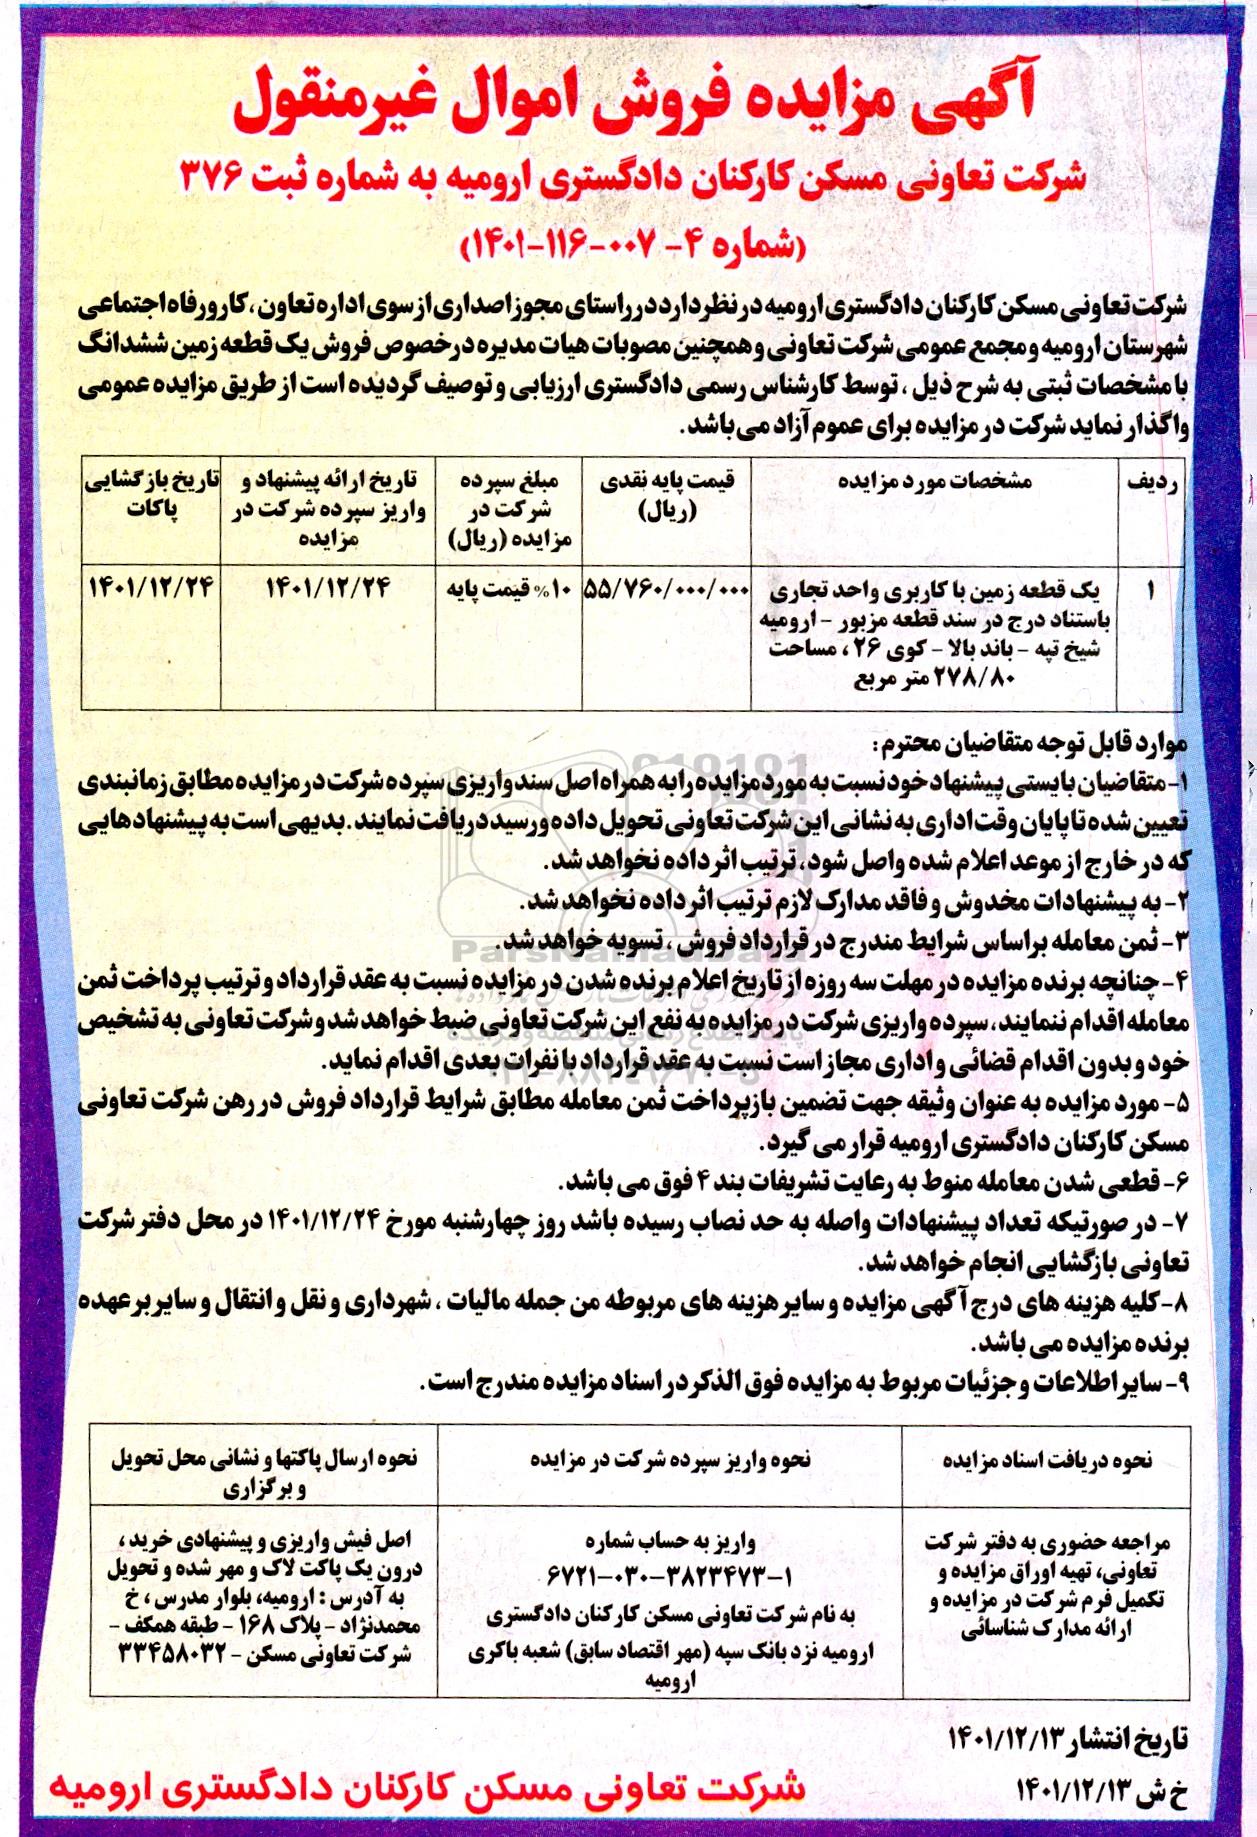 آگهی مزایده فروش اموال غیرمنقول
شرکت تعاونی مسکن کارکنان دادگستری ارومیه به شماره ثبت ۳۷۶
(شماره ۴- ۰۰۷-۱۱۶-۱۴۰۱)
شرکت تعاونی مسکن کارکنان دادگستری ارومیه در نظر دارد در راستای مجوز اصداری از سوی اداره تعاون ، کار و رفاه اجتماعی
شهرستان ارومیه و مجمع عمومی شرکت تعاونی و همچنین مصوبات هیات مدیره در خصوص فروش یک قطعه زمین ششدانگ
با مشخصات ثبتی به شرح ذیل ، توسط کارشناس رسمی دادگستری ارزیابی و توصیف گردیده است از طریق مزایده عمومی
واگذار نماید شرکت در مزایده برای عموم آزاد می باشد.
ردیف
مشخصات مورد مزایده
قیمت پایه نقدی
(ریال)
مبلغ سپرده
شرکت در
مزایده (ریال)
تاریخ ارائه پیشنهاد و
واریز سپرده شرکت در
مزایده
تاریخ بازگشایی
پاکات
۱
یک قطعه زمین با کاربری واحد تجاری
باستناد درج در سند قطعه مزبور - ارومیه
شیخ تپه - باند بالا - کوی ۲۶ ، مساحت
۲۷۸/۸۰ متر مربع
۵۵/۷۶۰/۰۰۰/۰۰۰
۱۰% قیمت پایه
۱۴۰۱/۱۲/۲۴
۱۴۰۱/۱۲/۲۴
موارد قابل توجه متقاضیان محترم:
۱- متقاضیان بایستی پیشنهاد خود نسبت به مورد مزایده را به همراه اصل سند واریزی سپرده شرکت در مزایده مطابق زمانبندی
تعیین شده تا پایان وقت اداری به نشانی این شرکت تعاونی تحویل داده و رسید دریافت نمایند . بدیهی است به پیشنهادهایی
که در خارج از موعد اعلام شده واصل شود، ترتیب اثر داده نخواهد شد.
۲- به پیشنهادات مخدوش و فاقد مدارک لازم ترتیب اثر داده نخواهد شد.
۳- ثمن معامله براساس شرایط مندرج در قرارداد فروش ، تسویه خواهد شد.
۴- چنانچه برنده مزایده در مهلت سه روزه از تاریخ اعلام برنده شدن در مزایده نسبت به عقد قرارداد و ترتیب پرداخت ثمن
معامله اقدام ننمایند، سپرده واریزی شرکت در مزایده به نفع این شرکت تعاونی ضبط خواهد شد و شرکت تعاونی به تشخیص
خود و بدون اقدام قضائی و اداری مجاز است نسبت به عقد قرارداد با نفرات بعدی اقدام نماید.
۵- مورد مزایده به عنوان وثیقه جهت تضمین بازپرداخت ثمن معامله مطابق شرایط قرارداد فروش در رهن شرکت تعاونی
مسکن کارکنان دادگستری ارومیه قرار می گیرد.
۶- قطعی شدن معامله منوط به رعایت تشریفات بند ۴ فوق می باشد.
۷- در صورتیکه تعداد پیشنهادات واصله به حد نصاب رسیده باشد روز چهارشنبه مورخ ۱۴۰۱/۱۲/۲۴ در محل دفتر شرکت
تعاونی بازگشایی انجام خواهد شد.
۸- کلیه هزینه های درج آگهی مزایده و سایر هزینه های مربوطه من جمله مالیات ، شهرداری و نقل و انتقال و سایر بر عهده
برنده مزایده می باشد.
۹- سایر اطلاعات و جزئیات مربوط به مزایده فوق الذکر در اسناد مزایده مندرج است.
نحوه دریافت اسناد مزایده
نحوه واریز سپرده شرکت در مزایده
نحوه ارسال پاکتها و نشانی محل تحویل
و برگزاری
مراجعه حضوری به دفتر شرکت
تعاونی، تهیه اوراق مزایده و
تکمیل فرم شرکت در مزایده و
ارائه مدارک شناسائی
واریز به حساب شماره
۶۷۲۱-۰۳۰-۳۸۲۳۴۷۳-۱
به نام شرکت تعاونی مسکن کارکنان دادگستری
ارومیه نزد بانک سپه (مهر اقتصاد سابق) شعبه باکری
ارومیه
اصل فیش واریزی و پیشنهادی خرید ،
درون یک پاکت لاک و مهر شده و تحویل
به آدرس : ارومیه، بلوار مدرس ، خ
محمدنژاد - پلاک ۱۶۸ - طبقه همکف -
شرکت تعاونی مسکن - ۳۳۴۵۸۰۳۲
تاریخ انتشار ۱۴۰۱/۱۲/۱۳
خ ش ۱۴۰۱/۱۲/۱۳
شرکت تعاونی مسکن کارکنان دادگستری ارومیه